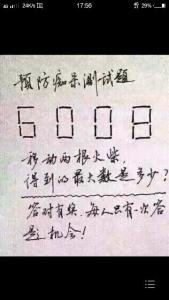 24K/s
17:56
29%
预防痴呆测试题
6008
移动两根火柴,
得到的最大数是多少?
答对有奖,每人只有一次答
题机会!